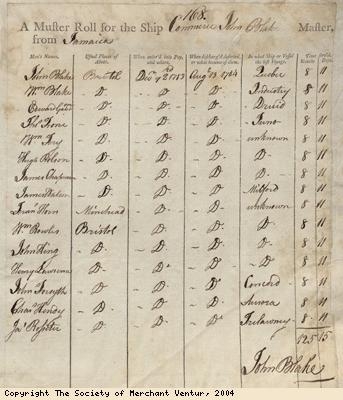 168.
A Muster Roll for the Ship Commerce John Blake Master,
from Jamaica
Men's Names. Usual Places of Abode. When enter'd into Pay, and where. When discharg'd In what Ship or Vessel the last Voyage.
John Blake Bristol 1783 Augt 13 1784 Quebec 8 11
Wm Blake D D D Industry 8 11
Edward D D D Druid 8 11
Thos D D D Juno 8 11
Wm D D D unknown 8 11
Hugh D D D D 8 11
James Chapman D D D D 8 11
James D D D Milford 8 11
Frans Horn Minehead D D unknown 8 11
Wm Bowles Bristol D D D 8 11
John King D D D D 8 11
Henry Lawrence D D D D 8 11
John Forsyth D D D Concord 8 11
Chas Hendy D D D Aurora 8 11
Jas D D D Trelawney 8 11
125 15
John Blake
Copyright The Society of Merchant Ventur, 2004